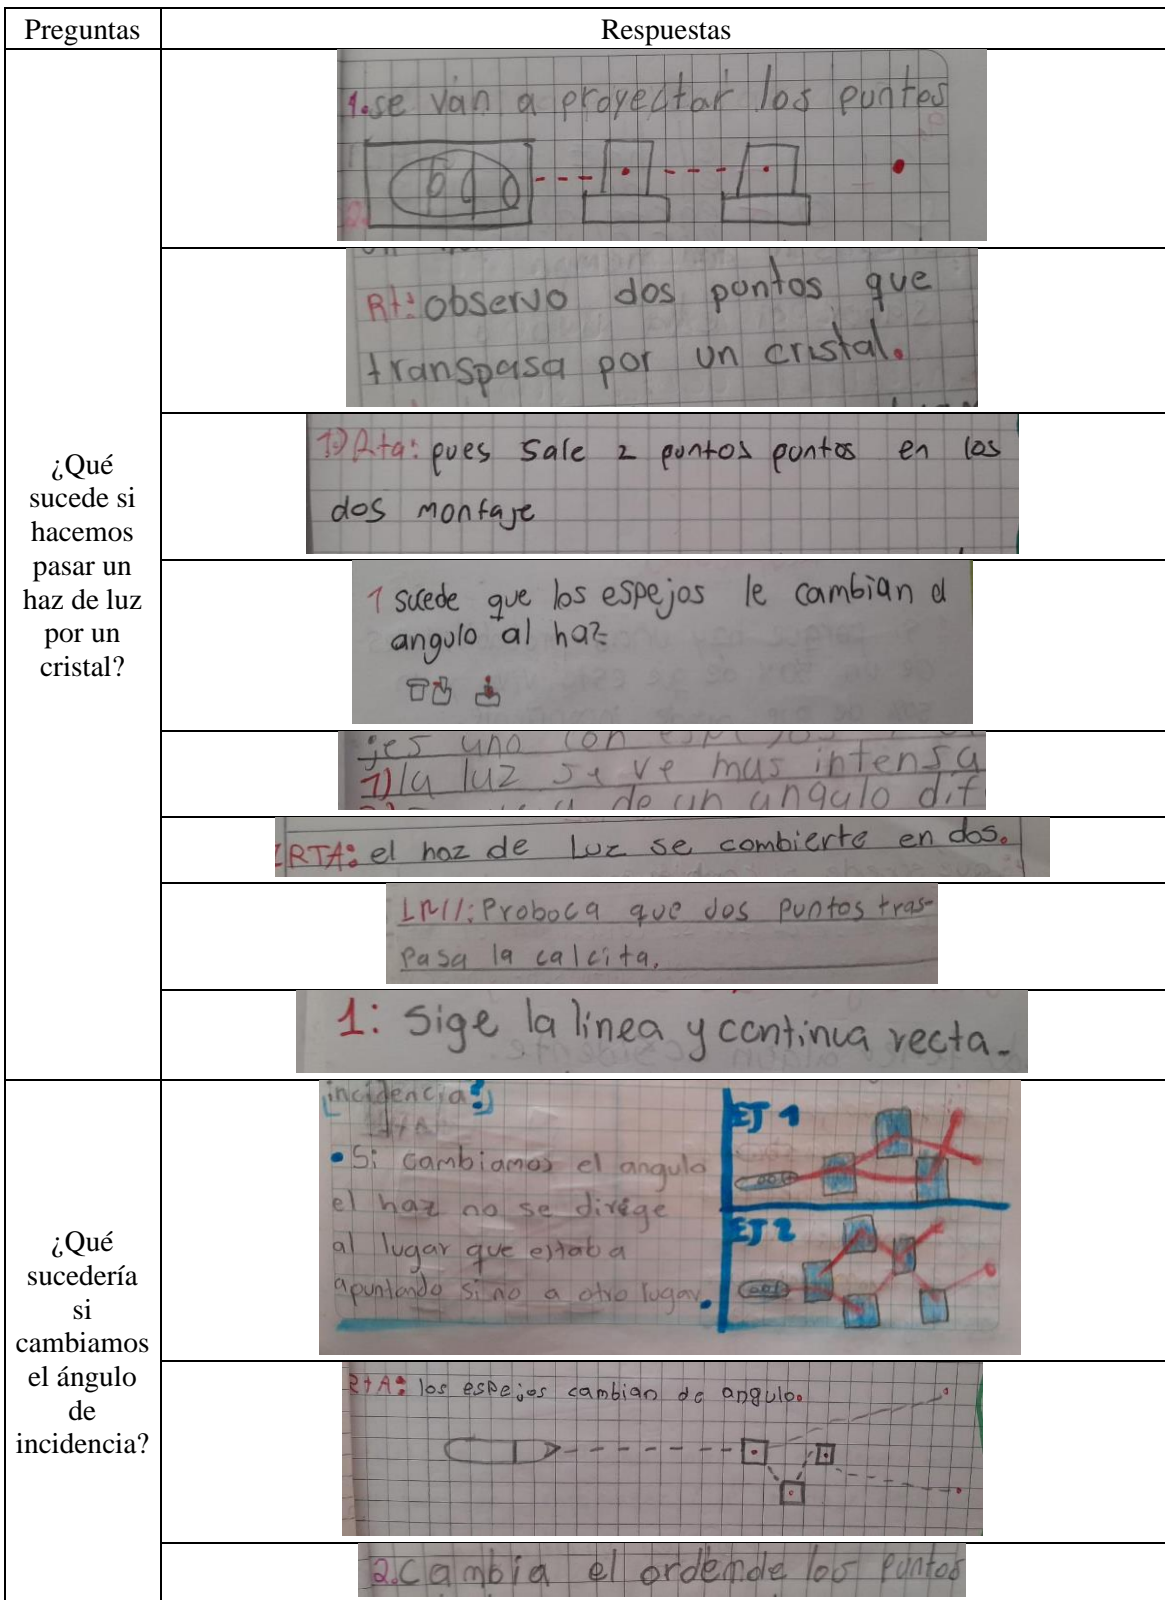 Preguntas
Respuestas
¿Qué
sucede si
hacemos
pasar un
haz de luz
por un
cristal?
1. se van a proyectar los puntos
Rt: observo dos pontos que
transpasa por un cristal.
1) Rta: pues sale 2 puntos pontos en los
dos montaje
1 sucede que los espejos le cambian el
angulo al haz
jes uno con espejos
1) la luz se ve mas intensa
de un angulo dif
RTA: el haz de luz se combierte en dos.
Proboca que dos puntos tras-
pasa la calcita.
1: Sige la linea y continua recta.
¿Qué
sucedería
si
cambiamos
el ángulo
de
incidencia?
incidencia?
• Si cambiamos el angulo
el haz no se dirige
al lugar que estaba
apuntando si no a otro lugar.
EJ 1
EJ 2
RtA: los espejos cambian de angulo.
2. Cambia el ordende los puntos